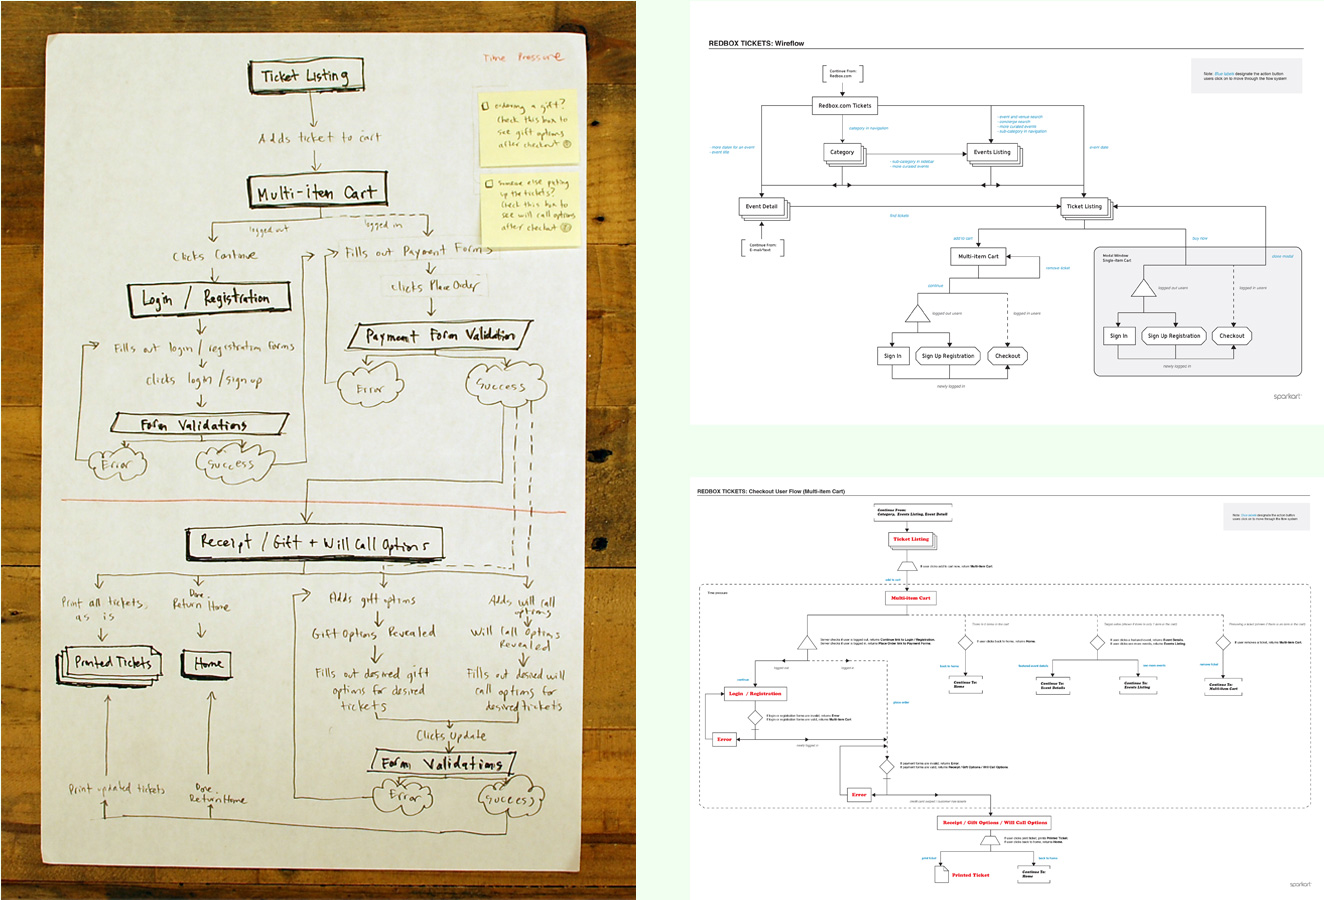 Time Pressure
Ticket Listing
Adds ticket to cart
Multi-item Cart
logged out
logged in
ordering a gift?
Check this box to
see gift options
after checkout
Someone else picking
up the tickets?
Check this box to
see will call options
after checkout
Clicks Continue
Fills out Payment Forms
Clicks Place Order
Login / Registration
Payment Form Validation
Fills out login / registration forms
Error
Success
Clicks login / sign up
Form Validations
Error
Success
Receipt / Gift + Will Call Options
Print all tickets
as is
Done.
Return Home
Adds gift options
Adds will call
options
Gift Options Revealed
Will Call Options
Revealed
Printed Tickets
Home
Fills out desired gift
options for desired
tickets
Fills out desired will
call options for
desired tickets
Clicks Update
Form Validations
Error
Success
Print updated tickets
Done.
Return Home
REDBOX TICKETS: Wireflow
Note: Blue labels designate the action button
users click on to move through the flow system
Continue From:
Redbox.com
Redbox.com Tickets
category in navigation
- event and venue search
- concierge search
- more curated events
- sub-category in navigation
- more dates for an event
- event title
event date
Category
- sub-category in sidebar
- more curated events
Events Listing
Event Detail
find tickets
Ticket Listing
Continue From:
E-mail/Text
add to cart
buy now
Multi-item Cart
remove ticket
Modal Window
Single-Item Cart
close modal
continue
logged out users
logged in users
logged out users
logged in users
Sign In
Sign Up Registration
Checkout
newly logged in
Sign In
Sign Up Registration
Checkout
newly logged in
sparkart
REDBOX TICKETS: Checkout User Flow (Multi-Item Cart)
Note: Blue labels designate the action button
users click on to move through the flow system
Continue From:
Category, Events Listing, Event Detail
Ticket Listing
add to cart
Multi-item Cart
Time pressure
logged out
logged in
continue
back to home
Continue To:
Home
Continue To:
Event Details
Continue To:
Events Listing
Continue To:
Multi-item Cart
remove ticket
Login / Registration
place order
Error
newly logged in
Error
Receipt / Gift Options / Will Call Options
print ticket
back to home
Printed Ticket
Continue To:
Home
sparkart